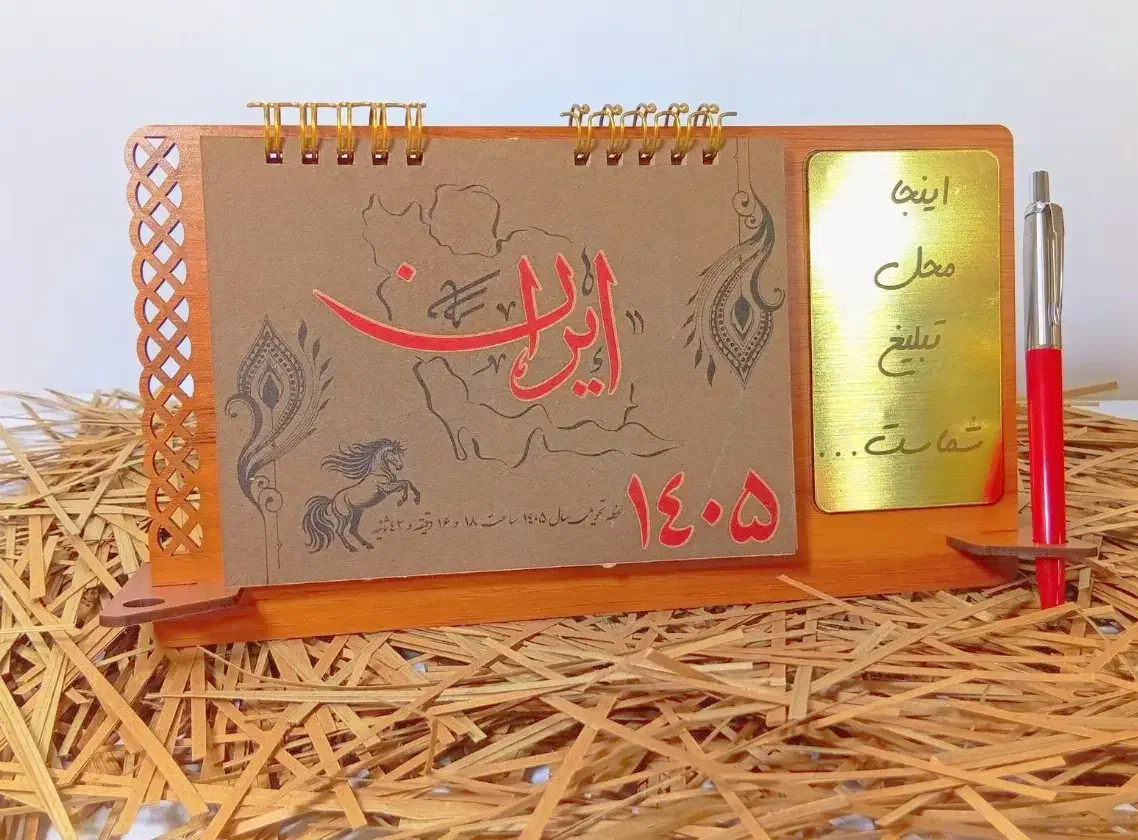 ایران
۱۴۰۵
لحظه تحویل سال ۱۴۰۵ ساعت ۱۸ و ۱۶ دقیقه و ۴۳ ثانیه
اینجا
محل
تبلیغ
شماست...